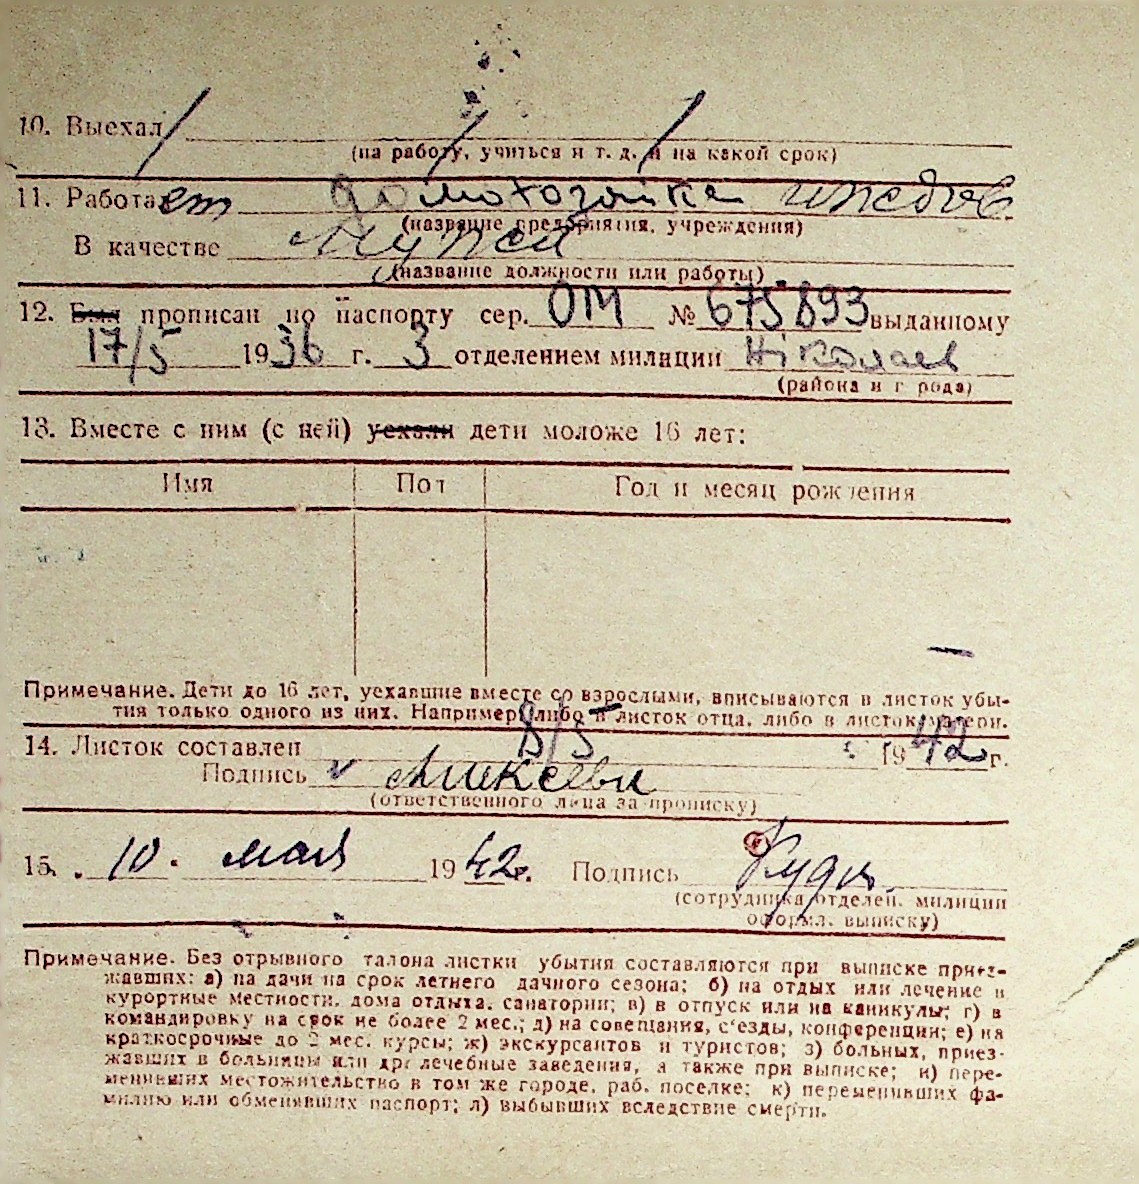 10. Выехал
(на работу, учиться и т. д. и на какой срок)
11. Работает домохозяйка иждив
(название предприятия, учреждения)
В качестве мужа
(название должности или работы)
12. Был прописан по паспорту сер. ОМ № 675893 выданному
17/5 1936 г. 3 отделением милиции Ніколаев
(района и города)
13. Вместе с ним (с ней) уехали дети моложе 16 лет:
Имя Пол Год и месяц рождения
Примечание. Дети до 16 лет, уехавшие вместе со взрослыми, вписываются в листок убы-
тия только одного из них. Например либо в листок отца, либо в листок матери.
14. Листок составлен 8/5 1942 г.
Подпись
(ответственного лица за прописку)
15. 10. мая 1942г. Подпись
(сотрудника отделен. милиции
оформл. выписку)
Примечание. Без отрывного талона листки убытия составляются при выписке приез-
жавших: а) на дачи на срок летнего дачного сезона; б) на отдых или лечение в
курортные местности, дома отдыха, санатории; в) в отпуск или на каникулы; г) в
командировку на срок не более 2 мес.; д) на совещания, с'езды, конференции; е) на
краткосрочные до 2 мес. курсы; ж) экскурсантов и туристов; з) больных, приез-
жавших в больницы или др. лечебные заведения, а также при выписке; и) пере-
менивших местожительство в том же городе, раб. поселке; к) переменивших фа-
милию или обменявших паспорт; л) выбывших вследствие смерти.